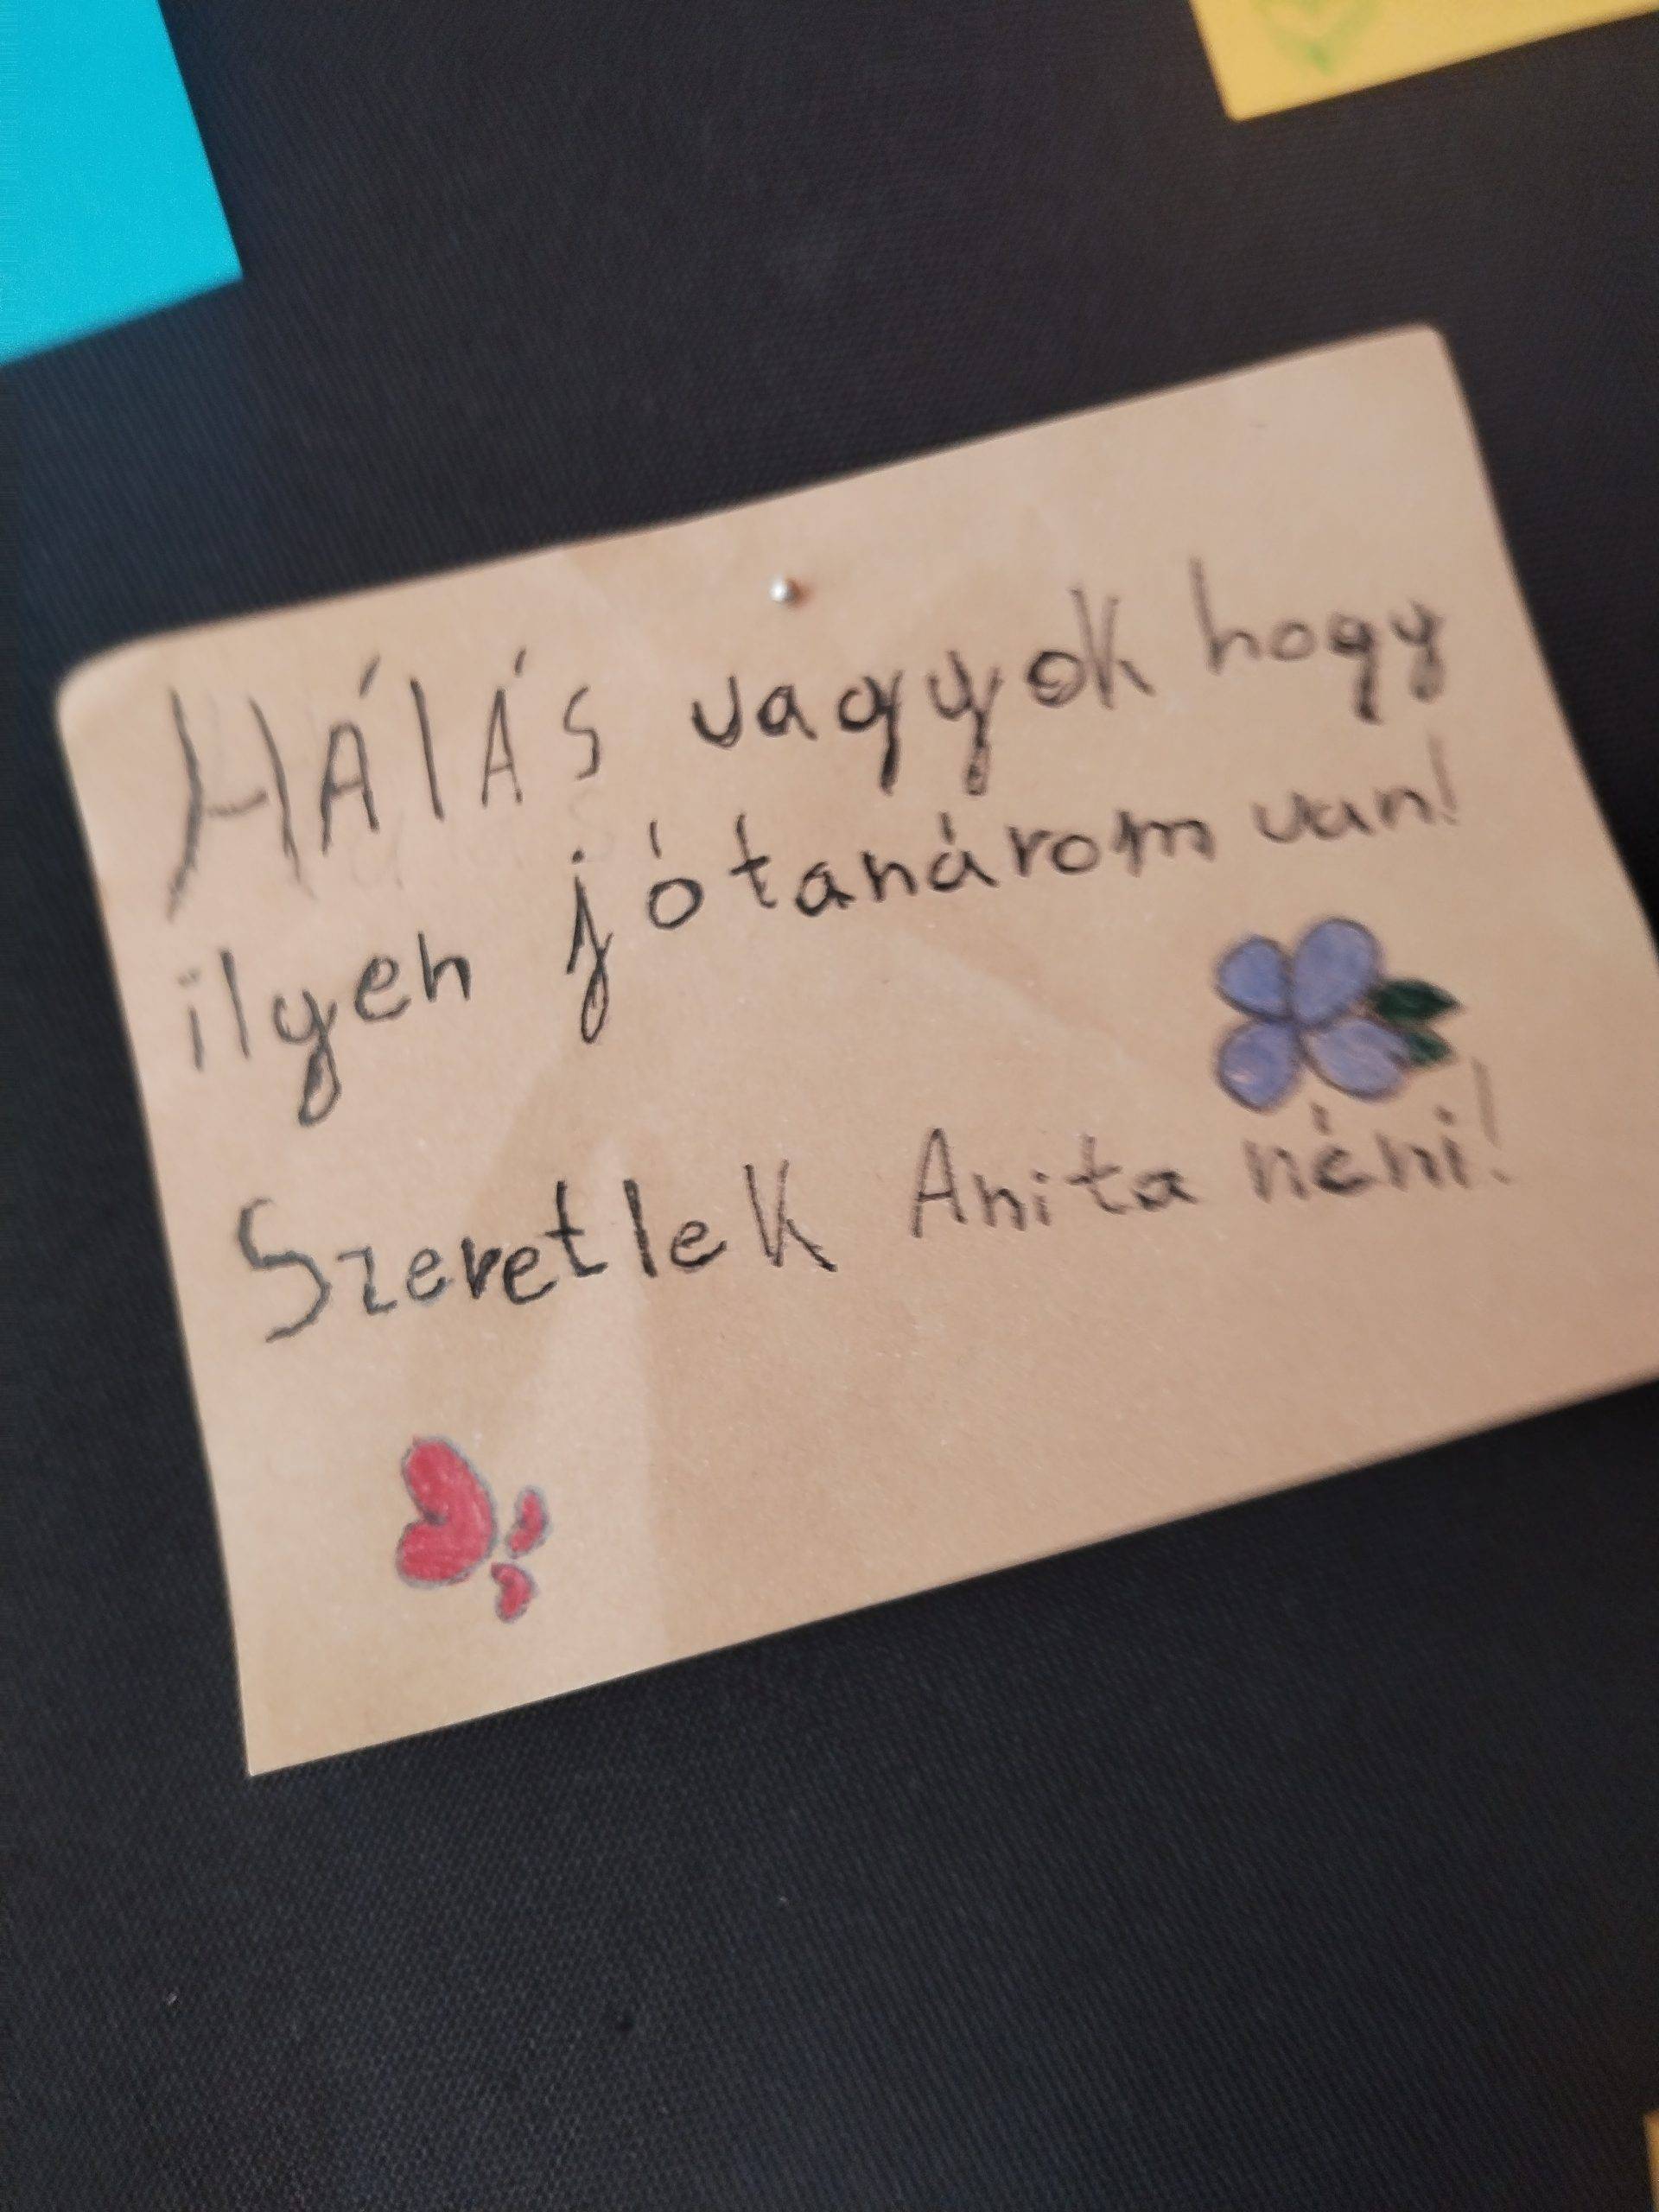 HÁlÁS vagyok hogy
ilyen jó tanárom van!
Szeretlek Anita néni!